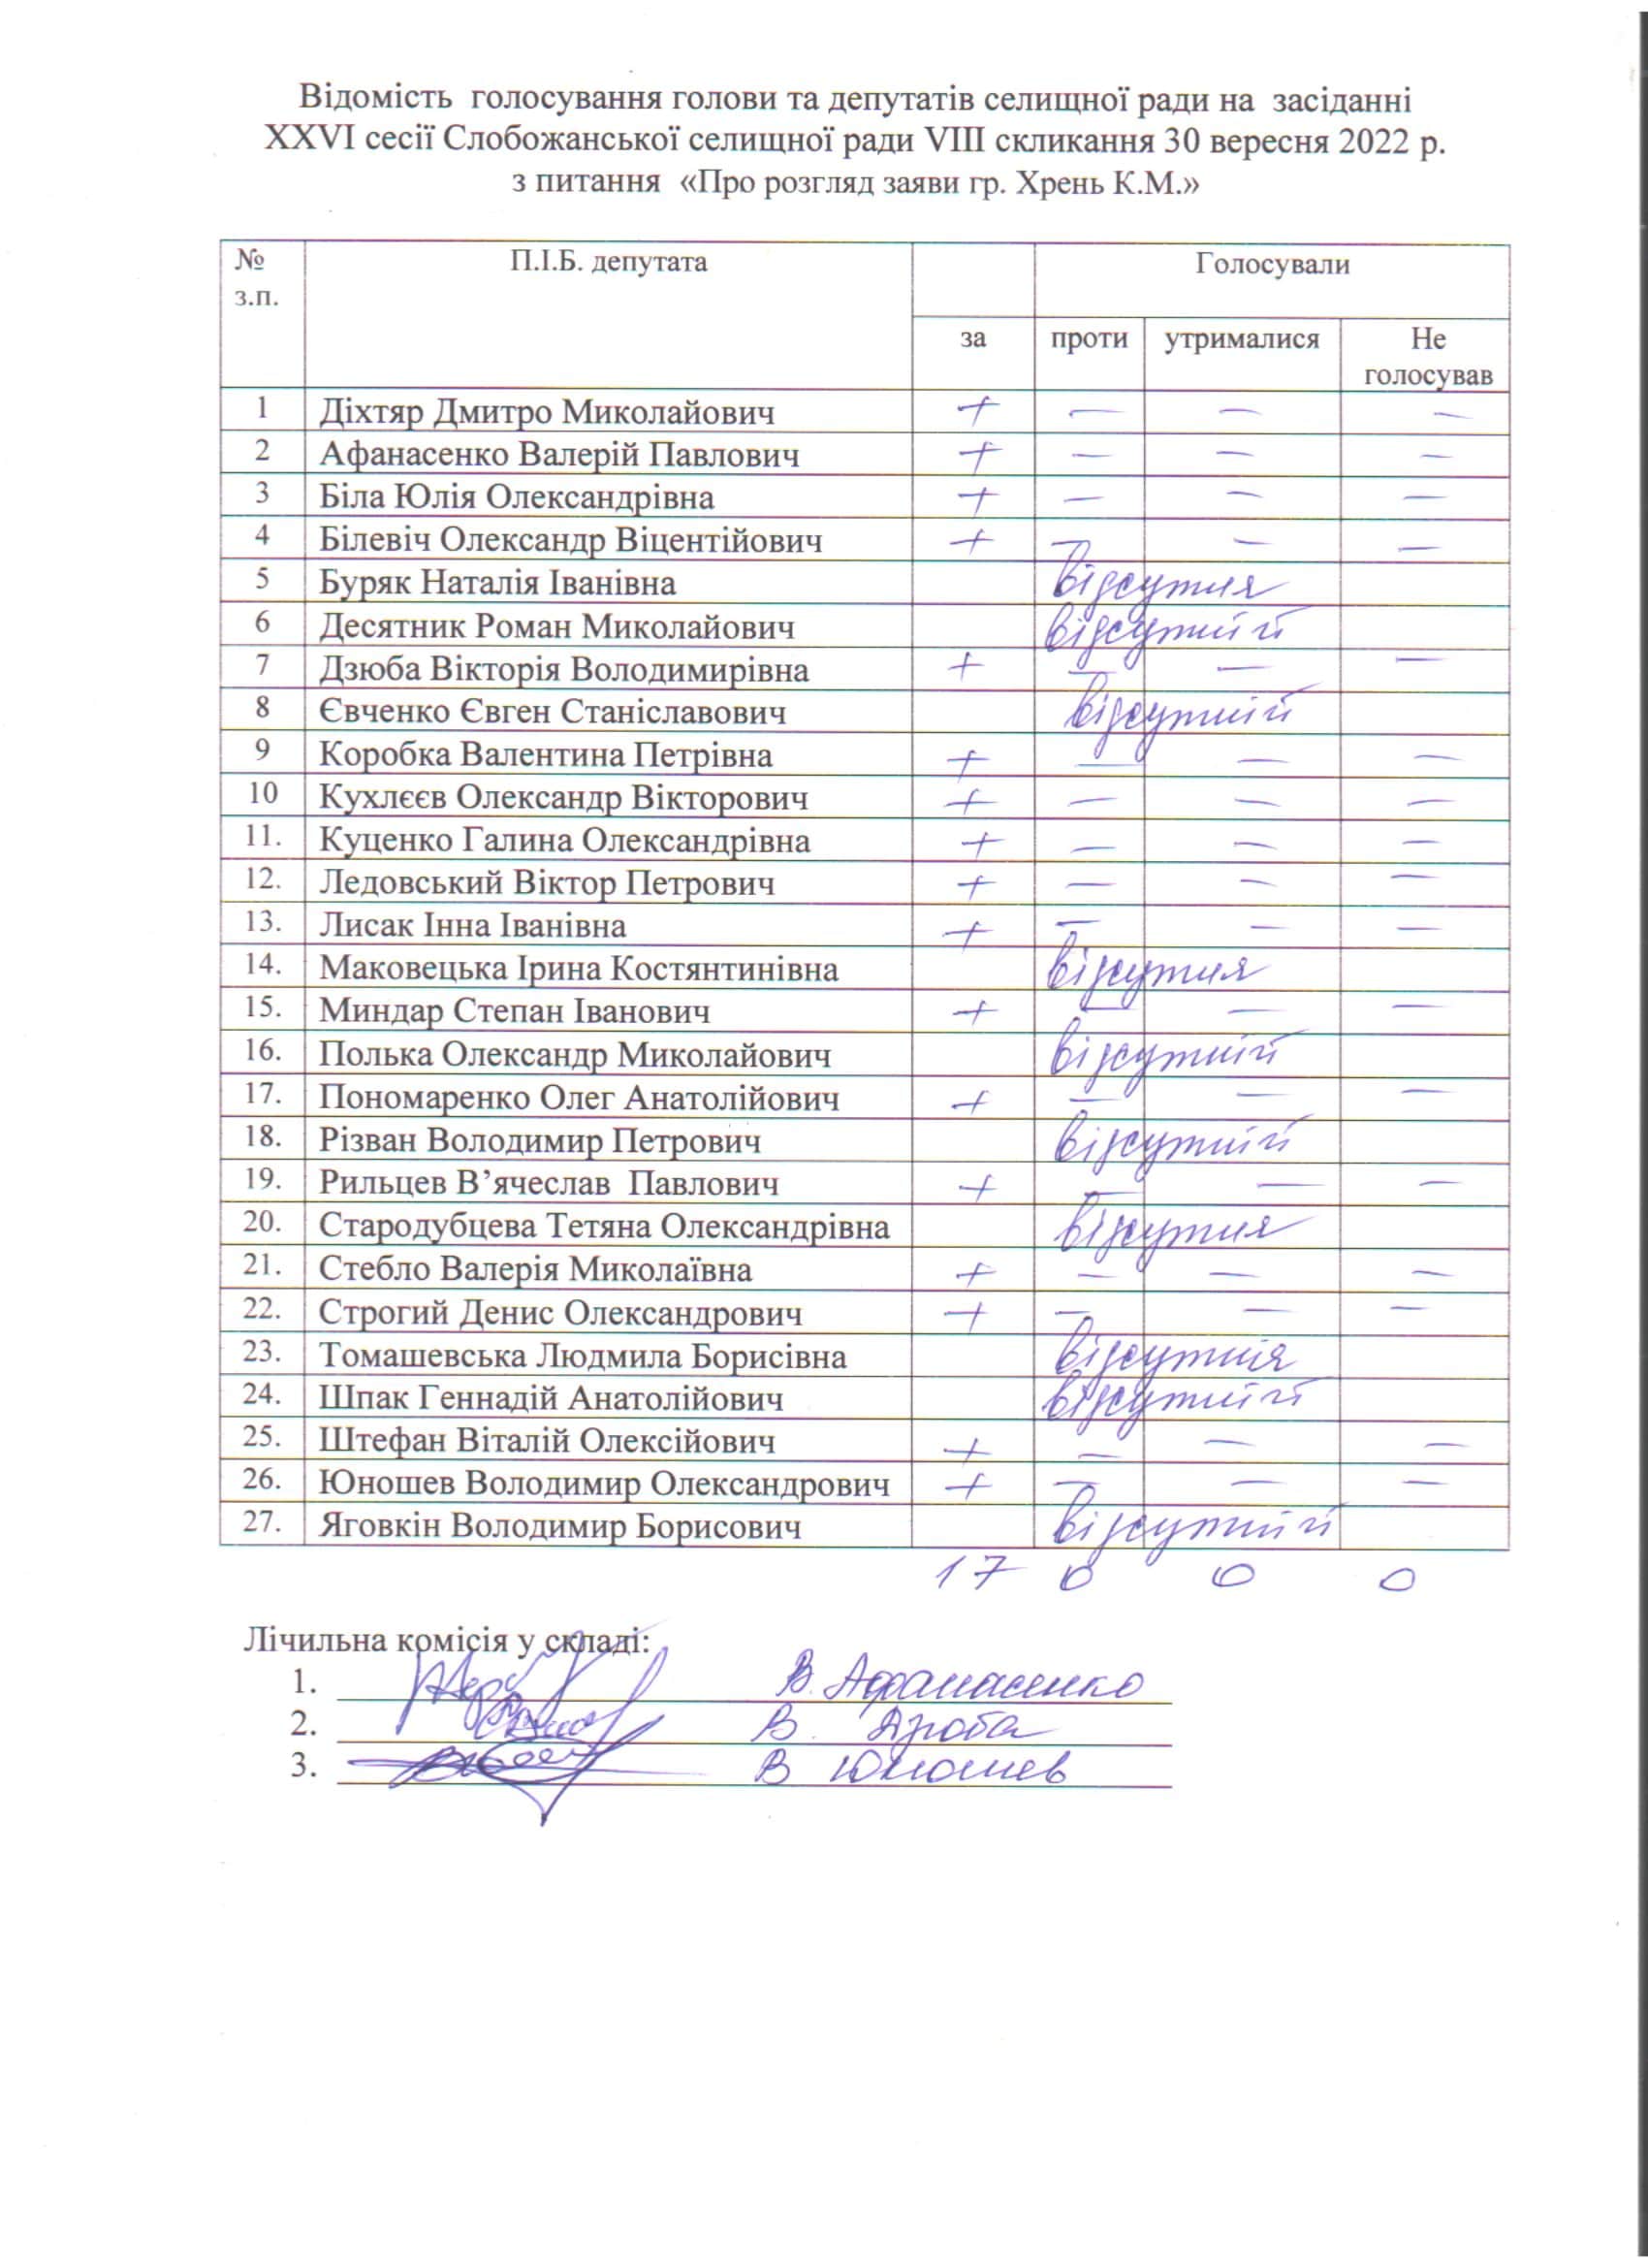 Відомість голосування голови та депутатів селищної ради на засіданні
XXVI сесії Слобожанської селищної ради VIII скликання 30 вересня 2022 р.
з питання «Про розгляд заяви гр. Хрень К.М.»
№ з.п. П.І.Б. депутата Голосували
за проти утрималися Не голосував
1 Діхтяр Дмитро Миколайович + — — —
2 Афанасенко Валерій Павлович + — — —
3 Біла Юлія Олександрівна + — — —
4 Білевіч Олександр Віцентійович + — — —
5 Буряк Наталія Іванівна відсутня
6 Десятник Роман Миколайович відсутній
7 Дзюба Вікторія Володимирівна + — — —
8 Євченко Євген Станіславович відсутній
9 Коробка Валентина Петрівна + — — —
10 Кухлєєв Олександр Вікторович + — — —
11. Куценко Галина Олександрівна + — — —
12. Ледовський Віктор Петрович + — — —
13. Лисак Інна Іванівна + — — —
14. Маковецька Ірина Костянтинівна відсутня
15. Миндар Степан Іванович + — — —
16. Полька Олександр Миколайович відсутній
17. Пономаренко Олег Анатолійович + — — —
18. Різван Володимир Петрович відсутній
19. Рильцев В’ячеслав Павлович + — — —
20. Стародубцева Тетяна Олександрівна відсутня
21. Стебло Валерія Миколаївна + — — —
22. Строгий Денис Олександрович + — — —
23. Томашевська Людмила Борисівна відсутня
24. Шпак Геннадій Анатолійович відсутній
25. Штефан Віталій Олексійович + — — —
26. Юношев Володимир Олександрович + — — —
27. Яговкін Володимир Борисович відсутній
17 0 0 0
Лічильна комісія у складі:
1. В. Афанасенко
2. В. Дзюба
3. В Юношев